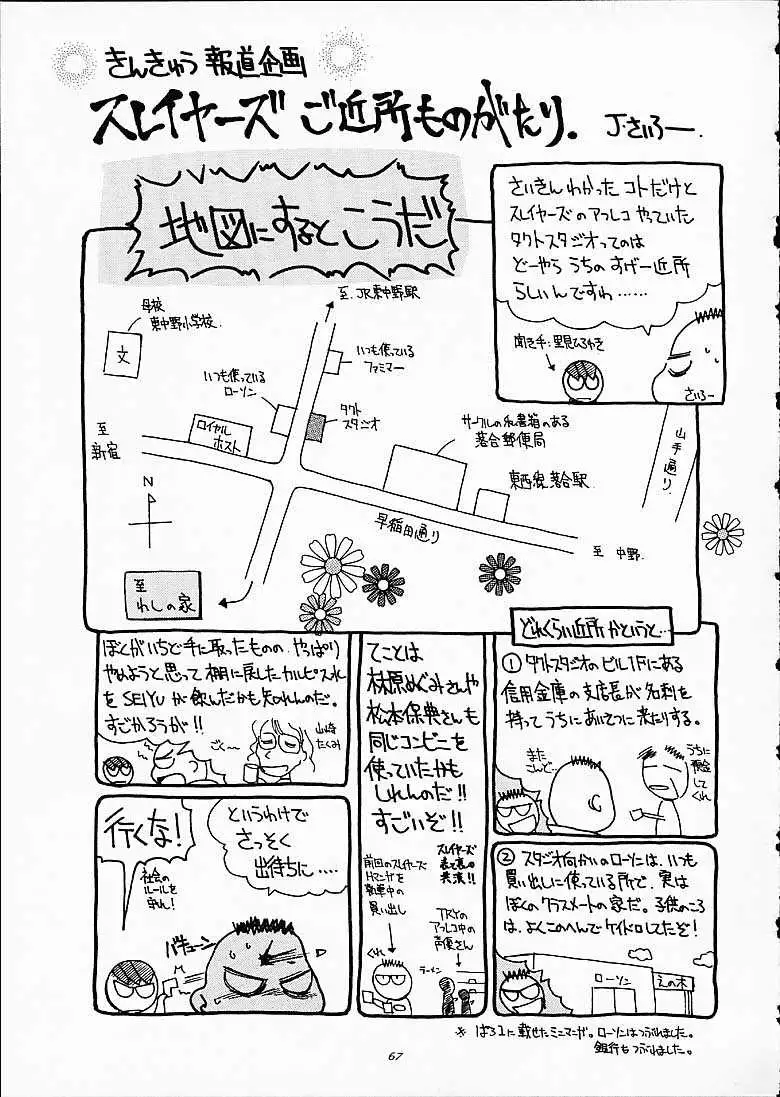 きんきゅう 報道企画
スレイヤーズ ご近所ものがたり。
J・さいろー.
地図にするとこうだ
さいきんわかったコトだけど
スレイヤーズのアフレコやっていた
タクトスタジオってのは
どーやらうちのすげー近所
らしいんですわ……
聞き手:里見ひろゆき
さいろー
至.JR東中野駅
母校
東中野小学校.
文
いつも使っている
ファミマー
いつも使っている
ローソン
タクト
スタジオ
ロイヤル
ホスト
至
新宿
サークルの私書箱のある
落合郵便局
東西線落合駅
山手通り
N
早稲田通り
至 中野.
至
わしの家
どれくらい近所かというと…
① タクトスタジオのビル1Fにある
信用金庫の支店長が名刺を
持ってうちにあいさつに来たりする。
また
さんど…
うちに
預金
して
くれ
② スタジオ向かいのローソンは、いつも
買い出しに使っている所で、実は
ぼくのクラスメートの家だ。子供のころ
は、よくこのへんでケイドロしてたぞ!
ローソン
えの木
てことは
林原めぐみさんや
松本保典さんも
同じコンビニを
使っていたかも
しれんのだ!!
すごいぞ!!
スレイヤーズ
表と裏の
共演!!
前回のスレイヤーズ
Hマンガを
執筆中の
買い出し
TRYの
アフレコ中の
声優さん
くれ
ラーメン
ぼくがいちど手に取ったものの、やっぱり
やめようと思って棚に戻したカルピス水
をSEIYUが飲んだかも知れんのだ。
すごかろうが!!
ごく〜
山崎
たくみ
というわけで
さっそく
出待ちに……
行くな!
社会の
ルールを
守れ!
バキューン
※ ぱろ1に載せたミニマンガ。ローソンはつぶれました。
銀行もつぶれました。
67